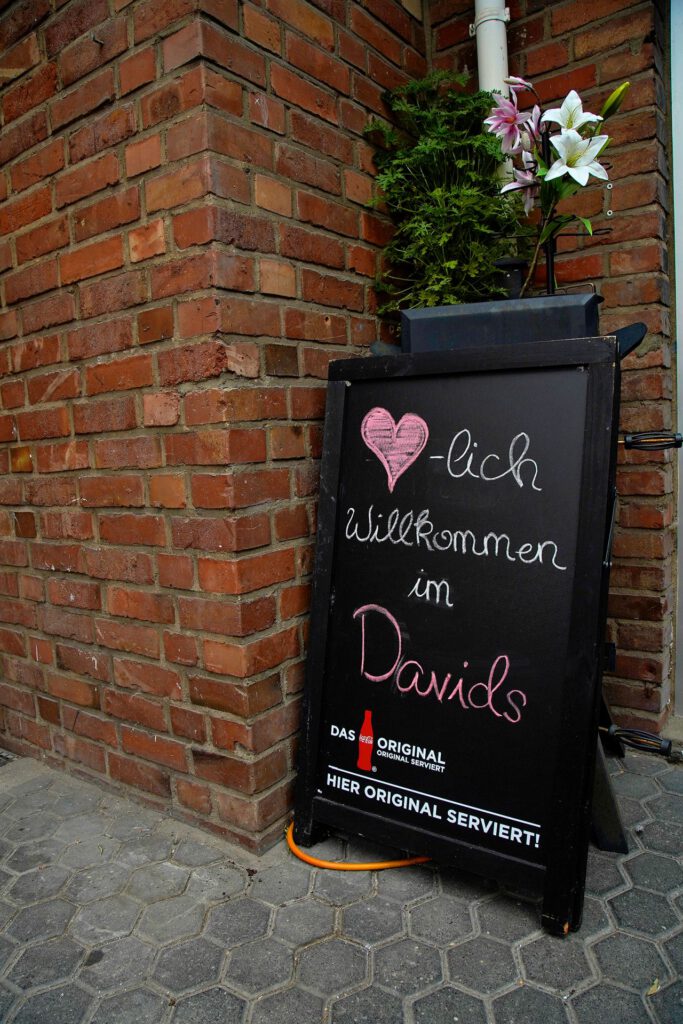 -lich
Willkommen
im
Davids
DAS Coca-Cola ORIGINAL
ORIGINAL SERVIERT
HIER ORIGINAL SERVIERT!